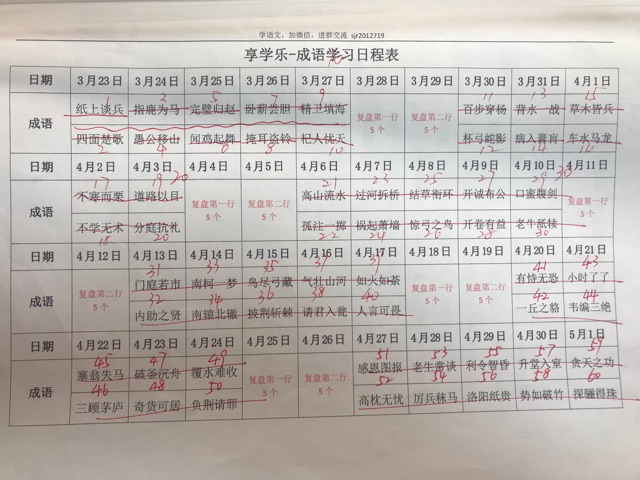 学语文，加微信，进群交流 sjr2012719
享学乐-成语学习日程表
日期 3月23日 3月24日 3月25日 3月26日 3月27日 3月28日 3月29日 3月30日 3月31日 4月1日
1 2 5 7 9 11 13 15
成语 纸上谈兵 指鹿为马 完璧归赵 卧薪尝胆 精卫填海 复盘第一行5个 复盘第二行5个 百步穿杨 背水一战 草木皆兵
四面楚歌 愚公移山 闻鸡起舞 掩耳盗铃 杞人忧天 杯弓蛇影 病入膏肓 车水马龙
2 4 6 8 10 12 14 16
日期 4月2日 4月3日 4月4日 4月5日 4月6日 4月7日 4月8日 4月9日 4月10日 4月11日
17 19 20 21 23 25 27 29 30
成语 不寒而栗 道路以目 复盘第一行5个 复盘第二行5个 高山流水 过河拆桥 结草衔环 开诚布公 口蜜腹剑 复盘第一行5个
不学无术 分庭抗礼 孤注一掷 祸起萧墙 惊弓之鸟 开卷有益 老牛舐犊
18 20 22 24 26 28 30
日期 4月12日 4月13日 4月14日 4月15日 4月16日 4月17日 4月18日 4月19日 4月20日 4月21日
31 33 35 37 39 41 43
成语 复盘第二行5个 门庭若市 南柯一梦 鸟尽弓藏 气壮山河 如火如荼 复盘第一行5个 复盘第二行5个 有恃无恐 小时了了
32 34 36 38 40 42 44
内助之贤 南辕北辙 披荆斩棘 请君入瓮 人言可畏 一丘之貉 韦编三绝
日期 4月22日 4月23日 4月24日 4月25日 4月26日 4月27日 4月28日 4月29日 4月30日 5月1日
45 47 49 51 53 55 57 59
成语 塞翁失马 破釜沉舟 覆水难收 复盘第一行5个 复盘第二行5个 感恩图报 老生常谈 利令智昏 升堂入室 贪天之功
46 48 50 52 54 56 58 60
三顾茅庐 奇货可居 负荆请罪 高枕无忧 厉兵秣马 洛阳纸贵 势如破竹 探骊得珠